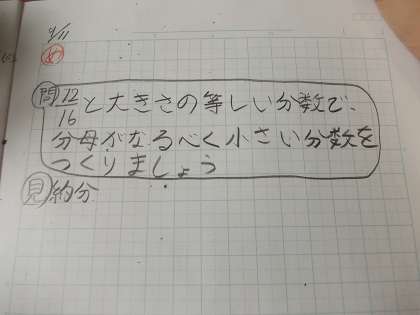 9/11
め
問 12/16と大きさの等しい分数で、
分母がなるべく小さい分数を
つくりましょう
見 約分